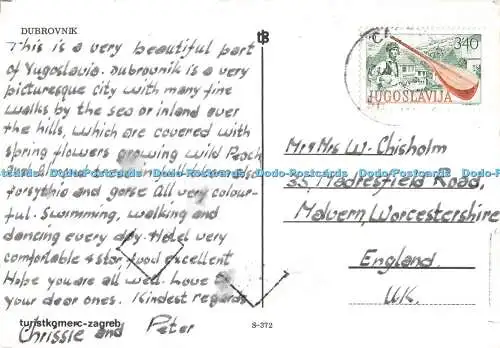 DUBROVNIK
This is a very beautiful part
of Yugoslavia. Dubrovnik is a very
picturesque city with many fine
walks by the sea or inland over
the hills, which are covered with
spring flowers growing wild Peach
forsythia and gorse All very colour-
ful. Swimming, walking and
dancing every day. Hotel very
comfortable 4 star, food excellent
Hope you are all well. Love to
your dear ones. Kindest regards
Chrissie and Peter
turistkomerc-zagreb
S-372
tB
340
JUGOSLAVIJA
Mr & Mrs W. Chisholm
33, Madresfield Road,
Malvern, Worcestershire
England.
U.K.
Dodo-Postcards Dodo-Postcards Dodo-Postcards Dodo-Postcards